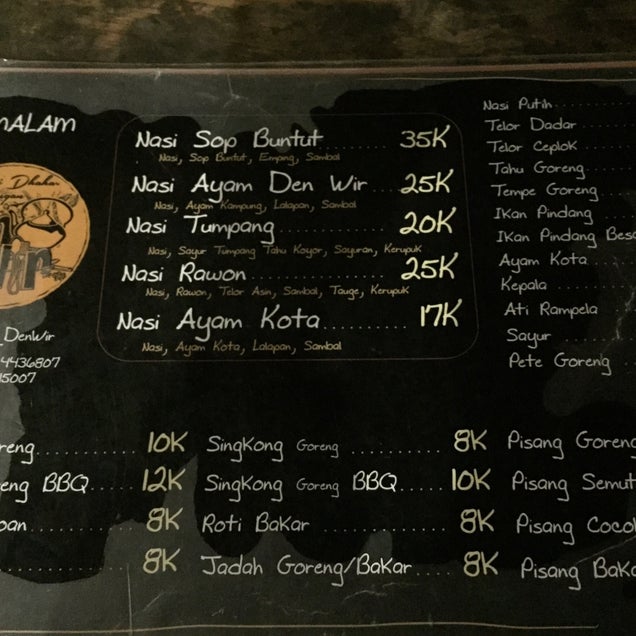 MALAM
Dhahar
DenWir
4436807
5007
Nasi Sop Buntut 35K
Nasi, Sop Buntut, Emping, Sambal
Nasi Ayam Den Wir 25K
Nasi, Ayam Kampung, Lalapan, Sambal
Nasi Tumpang 20K
Nasi, Sayur Tumpang Tahu Koyor, Sayuran, Kerupuk
Nasi Rawon 25K
Nasi, Rawon, Telor Asin, Sambal, Tauge, Kerupuk
Nasi Ayam Kota 17K
Nasi, Ayam Kota, Lalapan, Sambal
Nasi Putih
Telor Dadar
Telor Ceplok
Tahu Goreng
Tempe Goreng
Ikan Pindang
Ikan Pindang Besa
Ayam Kota
Kepala
Ati Rampela
Sayur
Pete Goreng
reng 10K
eng BBQ 12K
oan 8K
8K
Singkong Goreng 8K
Singkong Goreng BBQ 10K
Roti Bakar 8K
Jadah Goreng/Bakar 8K
Pisang Goreng
Pisang Semut
Pisang Cocol
Pisang Baka